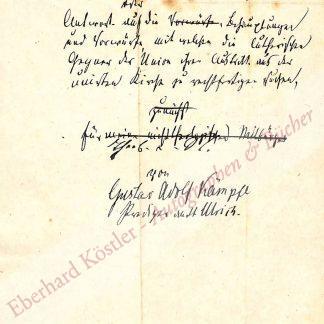 oder
Antwort auf die Vorwürfe, Behauptungen
und Vorwürfe mit welchen die lutherischen
Gegner der Union ihren Austritt aus der
unirten Kirche zu rechtfertigen suchen,
zunächst
für meine
von
Gustav Adolf Kämpfe
Prediger
Eberhard Köstler - Autographen & Bücher